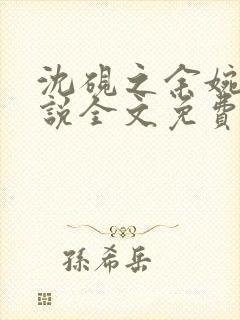 沈砚之余婉
说全文免費
孫希岳